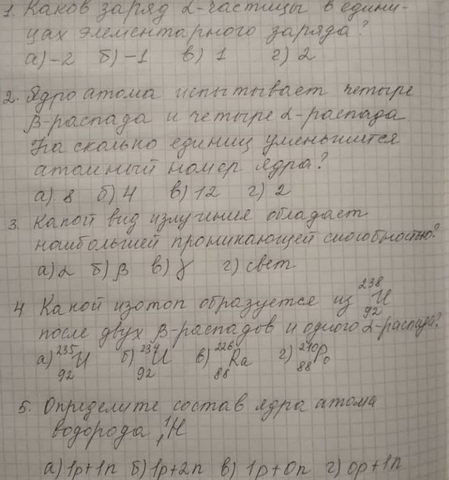 1. Каков заряд α-частицы в едини-
цах элементарного заряда?
а) -2 б) -1 в) 1 г) 2
2. Ядро атома испытывает четыре
β-распада и четыре α-распада
На сколько единиц уменьшится
атомный номер ядра?
а) 8 б) 4 в) 12 г) 2
3. Какой вид излучения обладает
наибольшей проникающей способностью?
а) α б) β в) γ г) свет
4 Какой изотоп образуется из ²³⁸₉₂U
после двух β-распадов и одного α-распада?
а) ²³⁵₉₂U б) ²³⁴₉₂U в) ²²⁶₈₈Ra г) ²¹⁰₈₈Po
5. Определите состав ядра атома
водорода ¹₁H
а) 1p+1n б) 1p+2n в) 1p+0n г) 0p+1n